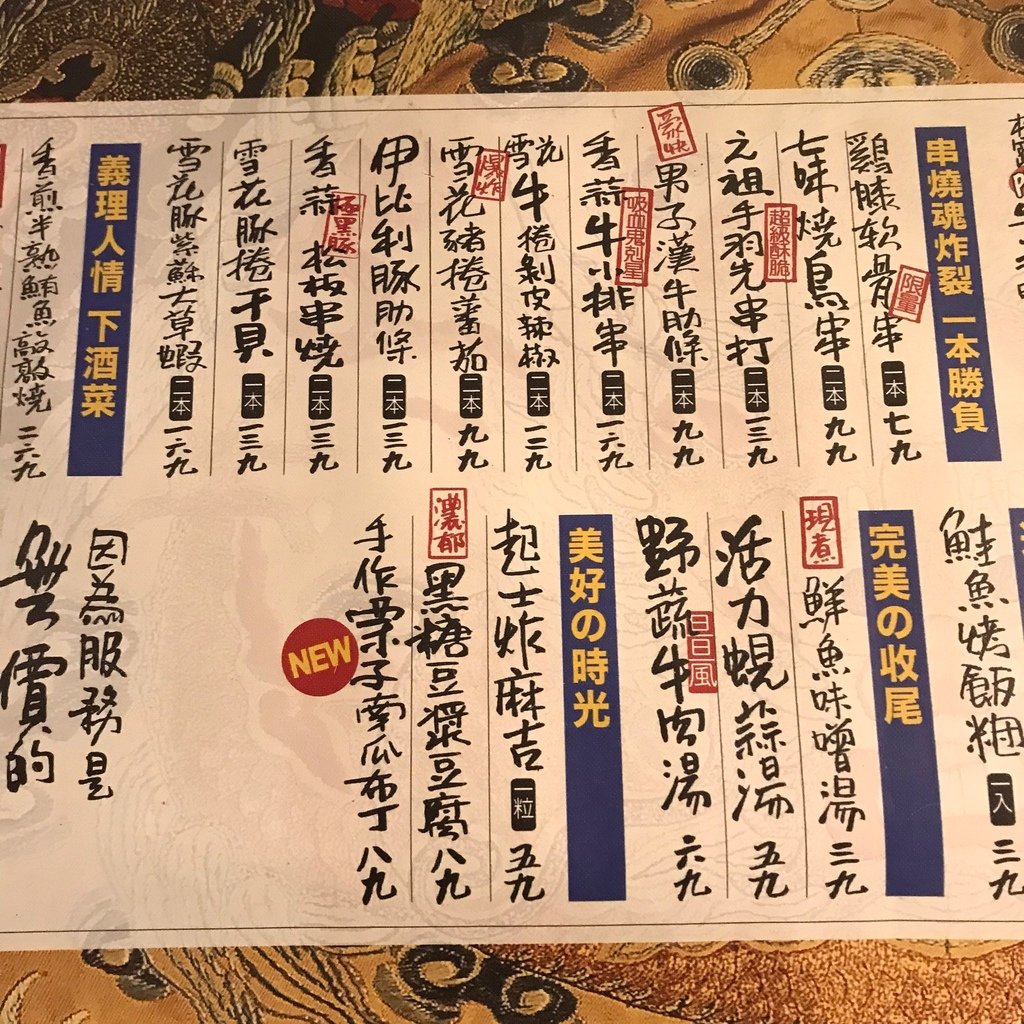 串燒魂炸裂 一本勝負
鷄膝軟骨串 限量 一本 七九
七味燒鳥串 二本 九九
元祖手羽先串打 超級酥脆 二本 一三九
男子漢牛肋條 二本 九九
香蒜牛小排串 吸血鬼剋星 二本 一六九
雪花牛捲剝皮辣椒 二本 一二九
雪花豬捲蕃茄 爆炸 二本 九九
伊比利豚肋條 二本 一三九
香蒜松坂串燒 極黑豚 二本 一三九
雪花豚捲干貝 一本 一三九
雪花豚紫蘇大草蝦 二本 一六九
義理人情 下酒菜
香煎半熟鮪魚敲敲燒 二六九
鮭魚烤飯糰 一入 三九
完美の收尾
現煮 鮮魚味噌湯 三九
活力蜆蒜湯 五九
野蔬牛肉湯 六九
美好の時光
起士炸麻吉 一粒 五九
濃郁 黑糖豆漿豆腐 八九
NEW 手作栗子南瓜布丁 八九
因為服務是
無價的